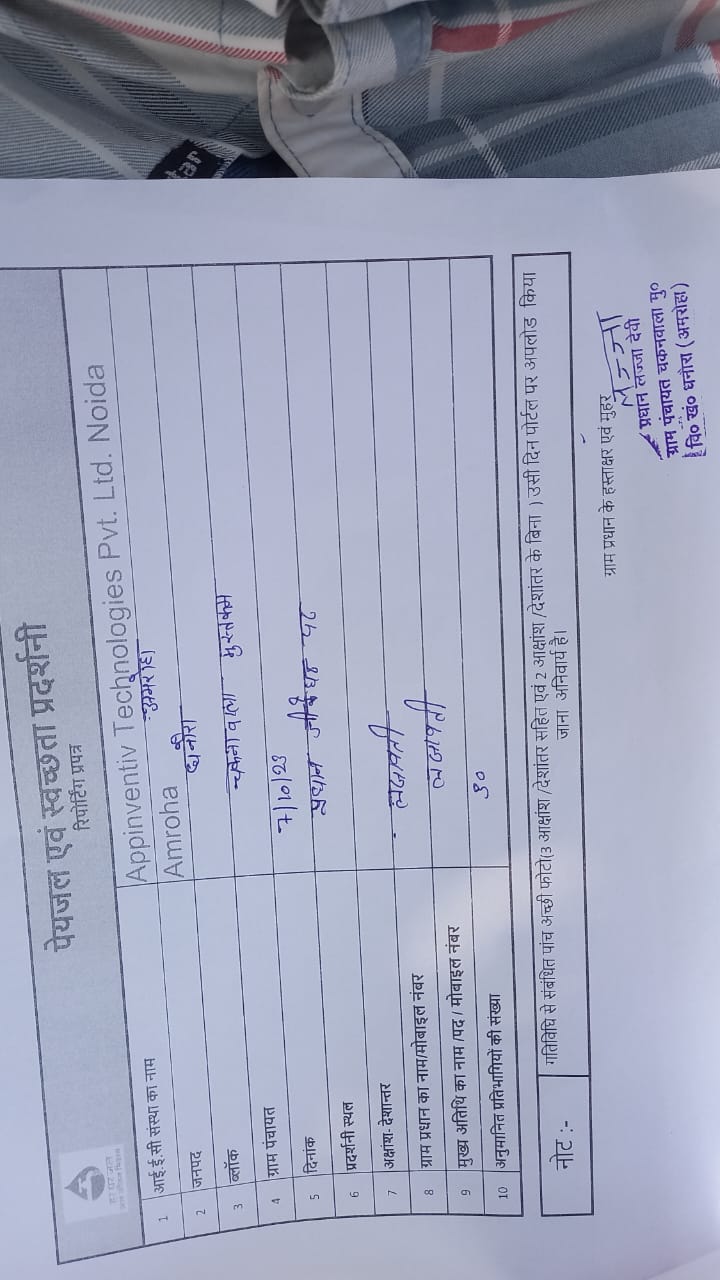 हर घर जल
जल जीवन मिशन
पेयजल एवं स्वच्छता प्रदर्शनी
रिपोर्टिंग प्रपत्र
1 आई.ई.सी संस्था का नाम Appinventiv Technologies Pvt. Ltd. Noida
2 जनपद Amroha अमरोहा
3 ब्लॉक धनौरा
4 ग्राम पंचायत चकनवाला मुस्तकम
5 दिनांक 7/10/23
6 प्रदर्शनी स्थल प्रधान जी के घर पर
7 अक्षांश- देशान्तर
8 ग्राम प्रधान का नाम/मोबाईल नंबर लजावती
9 मुख्य अतिथि का नाम /पद / मोबाईल नंबर लजावती
10 अनुमानित प्रतिभागियों की संख्या ९०
नोट :- गतिविधि से संबंधित पांच अच्छी फोटो(3 आक्षांश /देशांतर सहित एवं 2 आक्षांश /देशांतर के बिना ) उसी दिन पोर्टल पर अपलोड किया
जाना अनिवार्य है।
ग्राम प्रधान के हस्ताक्षर एवं मुहर
लज्जा
प्रधान लज्जा देवी
ग्राम पंचायत चकनवाला मु०
वि० खं० धनौरा (अमरोहा)
tar